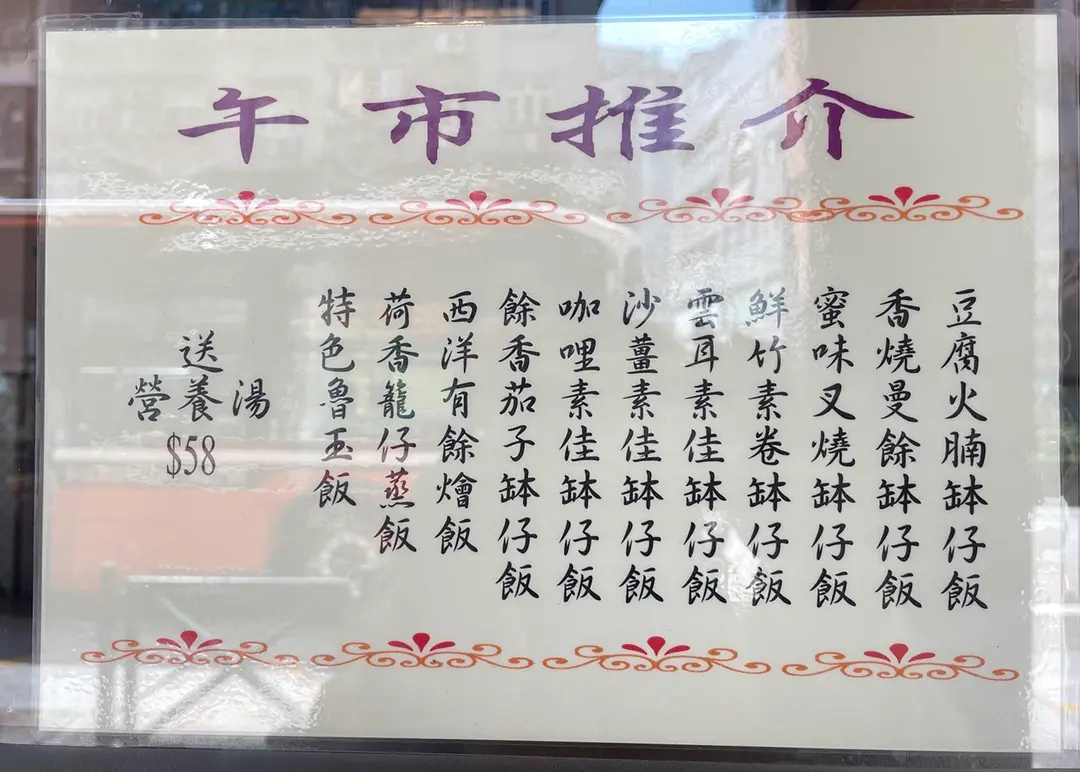 午市推介
豆腐火腩缽仔飯
香燒曼餘缽仔飯
蜜味叉燒缽仔飯
鮮竹素卷缽仔飯
雲耳素佳缽仔飯
沙薑素佳缽仔飯
咖哩素佳缽仔飯
餘香茄子缽仔飯
西洋有餘燴飯
荷香籠仔蒸飯
特色魯玉飯
送
營養湯
$58